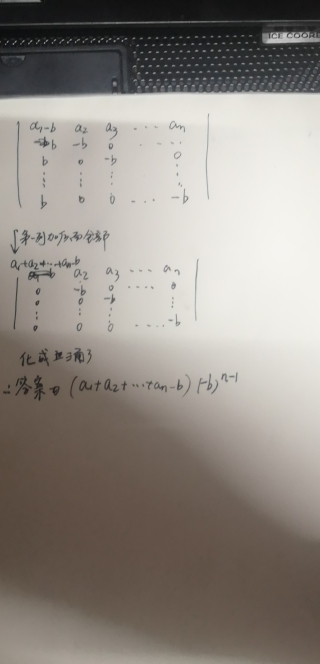 ICE COOR
a₁-b a₂ a₃ ... aₙ
b -b 0 ... ...
b 0 -b 0
⋮ ⋮ ⋮ ⋮
b 0 0 ... -b
↓第一列加后面全部
a₁+a₂+...+aₙ-b a₂ a₃ ... aₙ
0 -b 0 ... 0
0 0 -b ⋮
⋮ ⋮ ⋮
0 0 0 ... -b
化成上三角了
∴答案为 (a₁+a₂+...+aₙ-b) (-b)ⁿ⁻¹